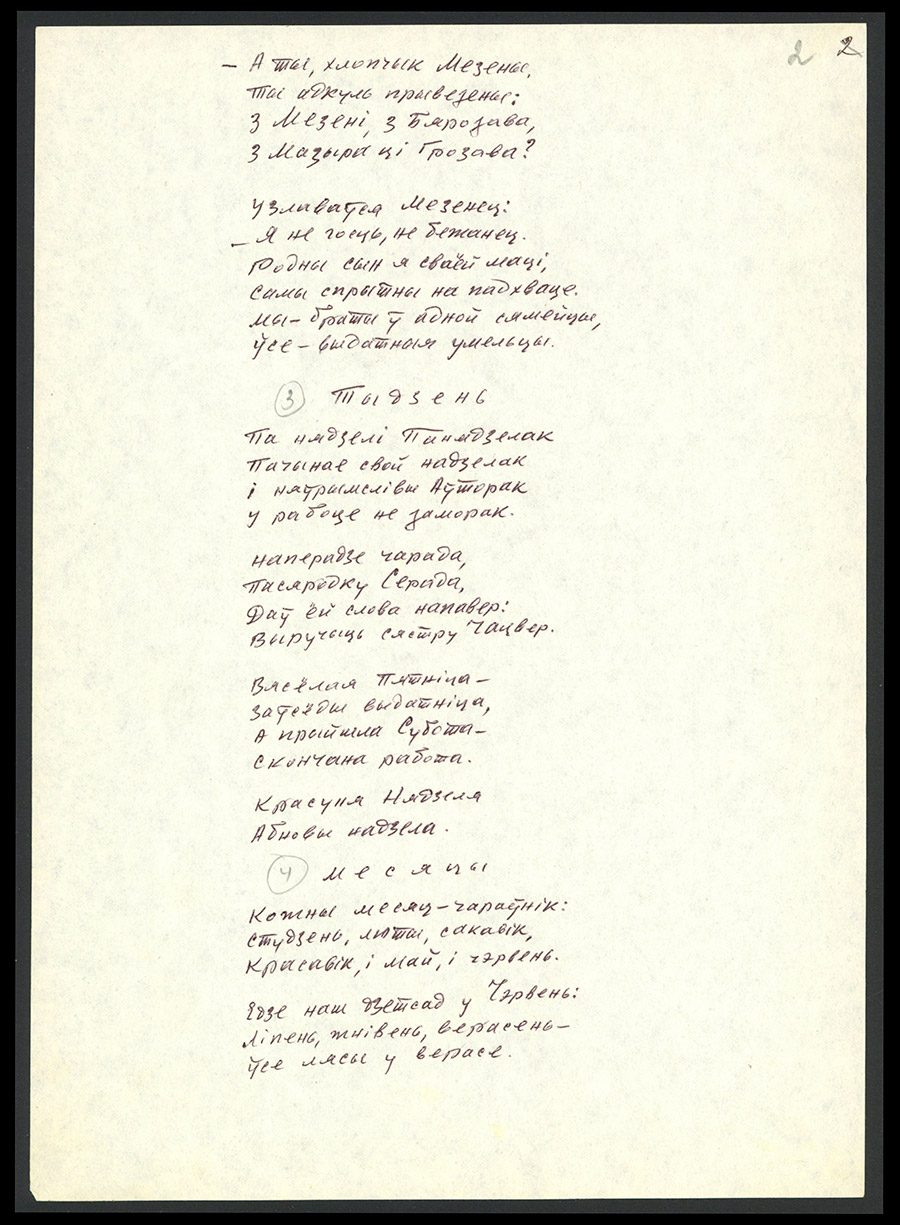 2 2
– А ты, хлопчык Мезены,
ты адкуль прывезены:
З Мезені, з Бярозава,
З Мазыра ці Грозава?
Узлаваўся Мезенец:
– Я не госць, не бежанец.
Родны сын я сваёй маці,
Самы спрытны на падхваце.
Мы – браты ў адной сямейцы,
ўсе – выдатныя умельцы.
3 Тыдзень
Па нядзелі Панядзелак
Пачынае свой надзелак
і няўрымслівы Аўторак
у рабоце не заморак.
Наперадзе чарада,
Пасяродку Серада,
Даў ёй слова напавер:
Выручыць сястру Чацвер.
Вясёлая Пятніца –
Заўсёды выдатніца,
А прыйшла Субота –
скончана работа.
Красуня Нядзеля
Абновы надзела.
4 Месяцы
Кожны месяц – чараўнік:
Студзень, люты, сакавік,
Красавік, і май, і чэрвень.
Едзе наш дзетсад у Чэрвень:
Ліпень, жнівень, верасень –
ўсе лясы у верасе.